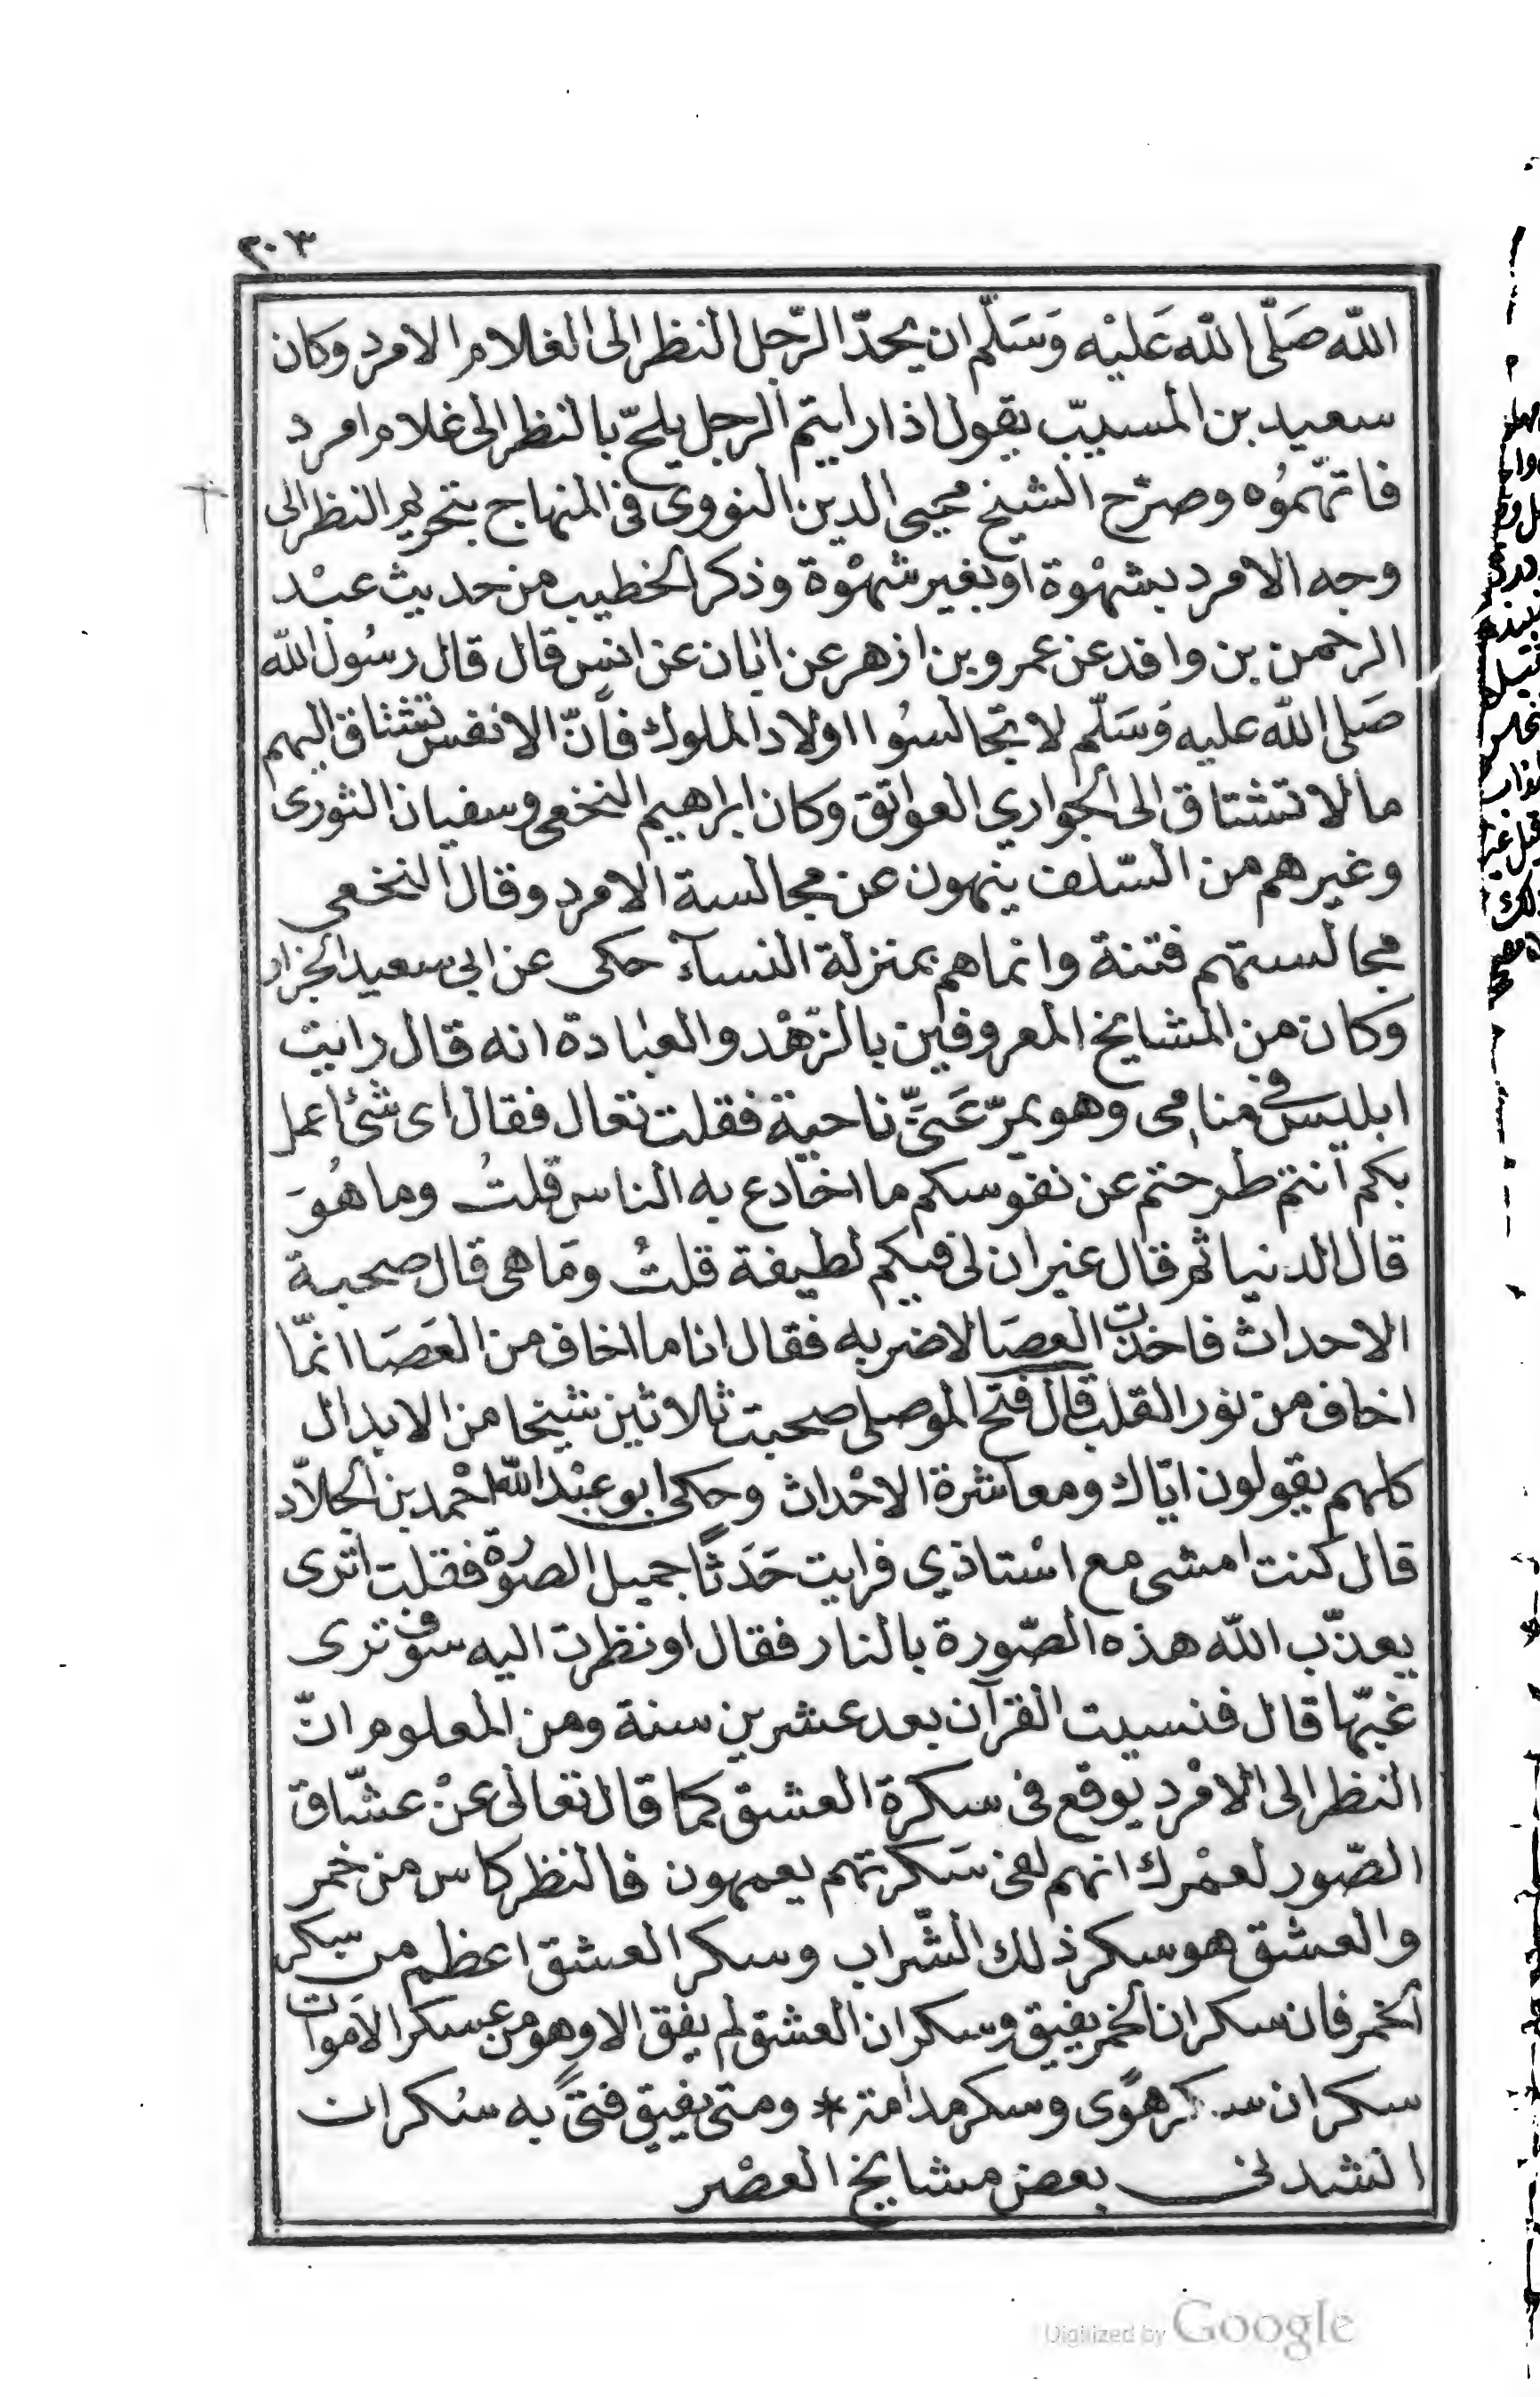 ٣٠٣
الله صَلَّى الله عَليْه وَسَلَّم ان يحدّ الرّجل النظر الى الغلام الامرد وكان
سعيد بن المسيبّ يقول اذا رايتم الرجل يلحّ بالنظر الى غلام امرد
فاتهّمُوُه وصرّح الشيخ محيى الدين النووى فى المنهاج بتحريم النظر الى
وجه الامرد بشهْوة او بغير شهْوة وذكر الخطيب من حديث عبْد
الرحمن بن واقد عن عمرو بن ازهر عن ابان عن انس قال قال رسُول الله
صَلى الله عليه وَسَلّم لا تجالسُوا اولاد الملوك فاِنّ الانفس تشتاق اليهم
ما لا تشتاق الى الجواري العواتق وكان ابراهيم النخعى وسفيان الثورى
وغيرهم من السّلف ينهون عن مجالسة الامرد وقال النخعى
مجالستهم فتنة وانما هم بمنزلة النسآء حكى عن ابى سعيد الخراز
وكان من المشايخ المعروفين بالزّهْد والعبادة انه قال رايت
ابليس فى منامى وهو يمرّ عَنىَّ ناحية فقلت تعال فقال اى شئ اعمل
بكم انتم طرحتم عن نفوسكم ما اخادع به الناس قلتُ وما هُوَ
قال الدنيا ثم قال غير ان لى فيكم لطيفة قلتُ ومَا هى قال صحبة
الاحداث فاخذت العصَا لاضربه فقال انا ما اخاف من العَصَا انمّا
اخاف من نور القلب قال فتح الموصلى صحبت ثلاثين شيخا من الابدال
كلهم يقولون ايّاك ومعاشرة الاحْداث وحكى ابو عبْد الله احْمد بن الجلاّد
قال كنت امشى مع اسْتاذي فرايت حَدَثًا جميل الصوُرة فقلت اترى
يعذّب الله هذه الصّورة بالنار فقال او نظرت اليه سوف ترى
غبّها قال فنسيت القرآن بعد عشرين سنة ومن المعلوم انّ
النظر الى الامْرد يوقع فى سكرة العشق كما قال تعالى عنْ عشّاق
الصّور لعمْرك انهم لفى سَكرتهم يعمهون فالنظر كاس من خمر
والعشق هو سكر ذلك الشّراب وسكر العشق اعظم من سكر
الخمر فان سكران الخمر يفيق وسكران العشق لم يفق الا وهو من عسكر الاموَات
سكران سكر هوًى وسكر مدامة * ومتى يفيق فتىً به سُكران
انشدنى بعض مشايخ العصْر
Digitized by Google